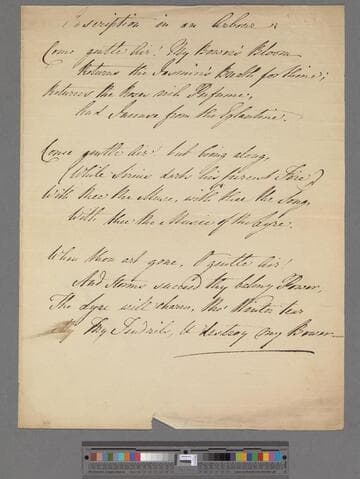 Inscription in an Arbour
Come gentle Air! My Bower's Bloom
Returns the Jasmin's Breath for thine;
Returns the Rose's rich Perfume,
And Sweets from the Eglantine.
Come gentle Air! but bring along,
(While Sirius darts his fervent Fire)
With thee the Muse, with thee the Song,
With thee the Music of the Lyre.
When thou art gone, O gentle Air!
And Storms succeed thy balmy Power,
The Lyre will charm, tho' Winter tear
My Tendrils, & destroy my Bower.